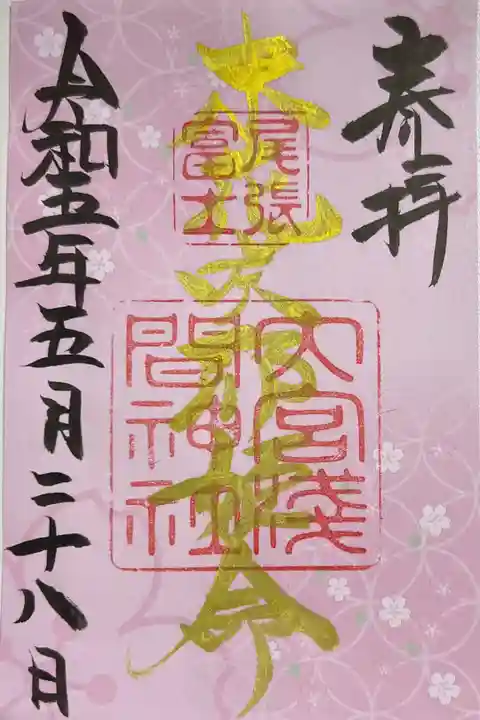 奉拝
木花咲耶姫命
尾張
冨士
大宮淺
間神社
令和五年五月二十八日